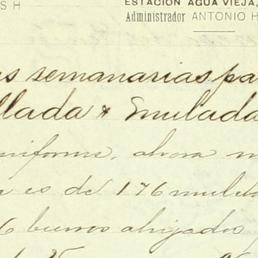 S H
ESTACIÓN AGUA VIEJA,
Administrador ANTONIO H
s semanarias pa
llada & Emulada
niforme, ahora m
es de 176 mulas
6 burros ahijados,